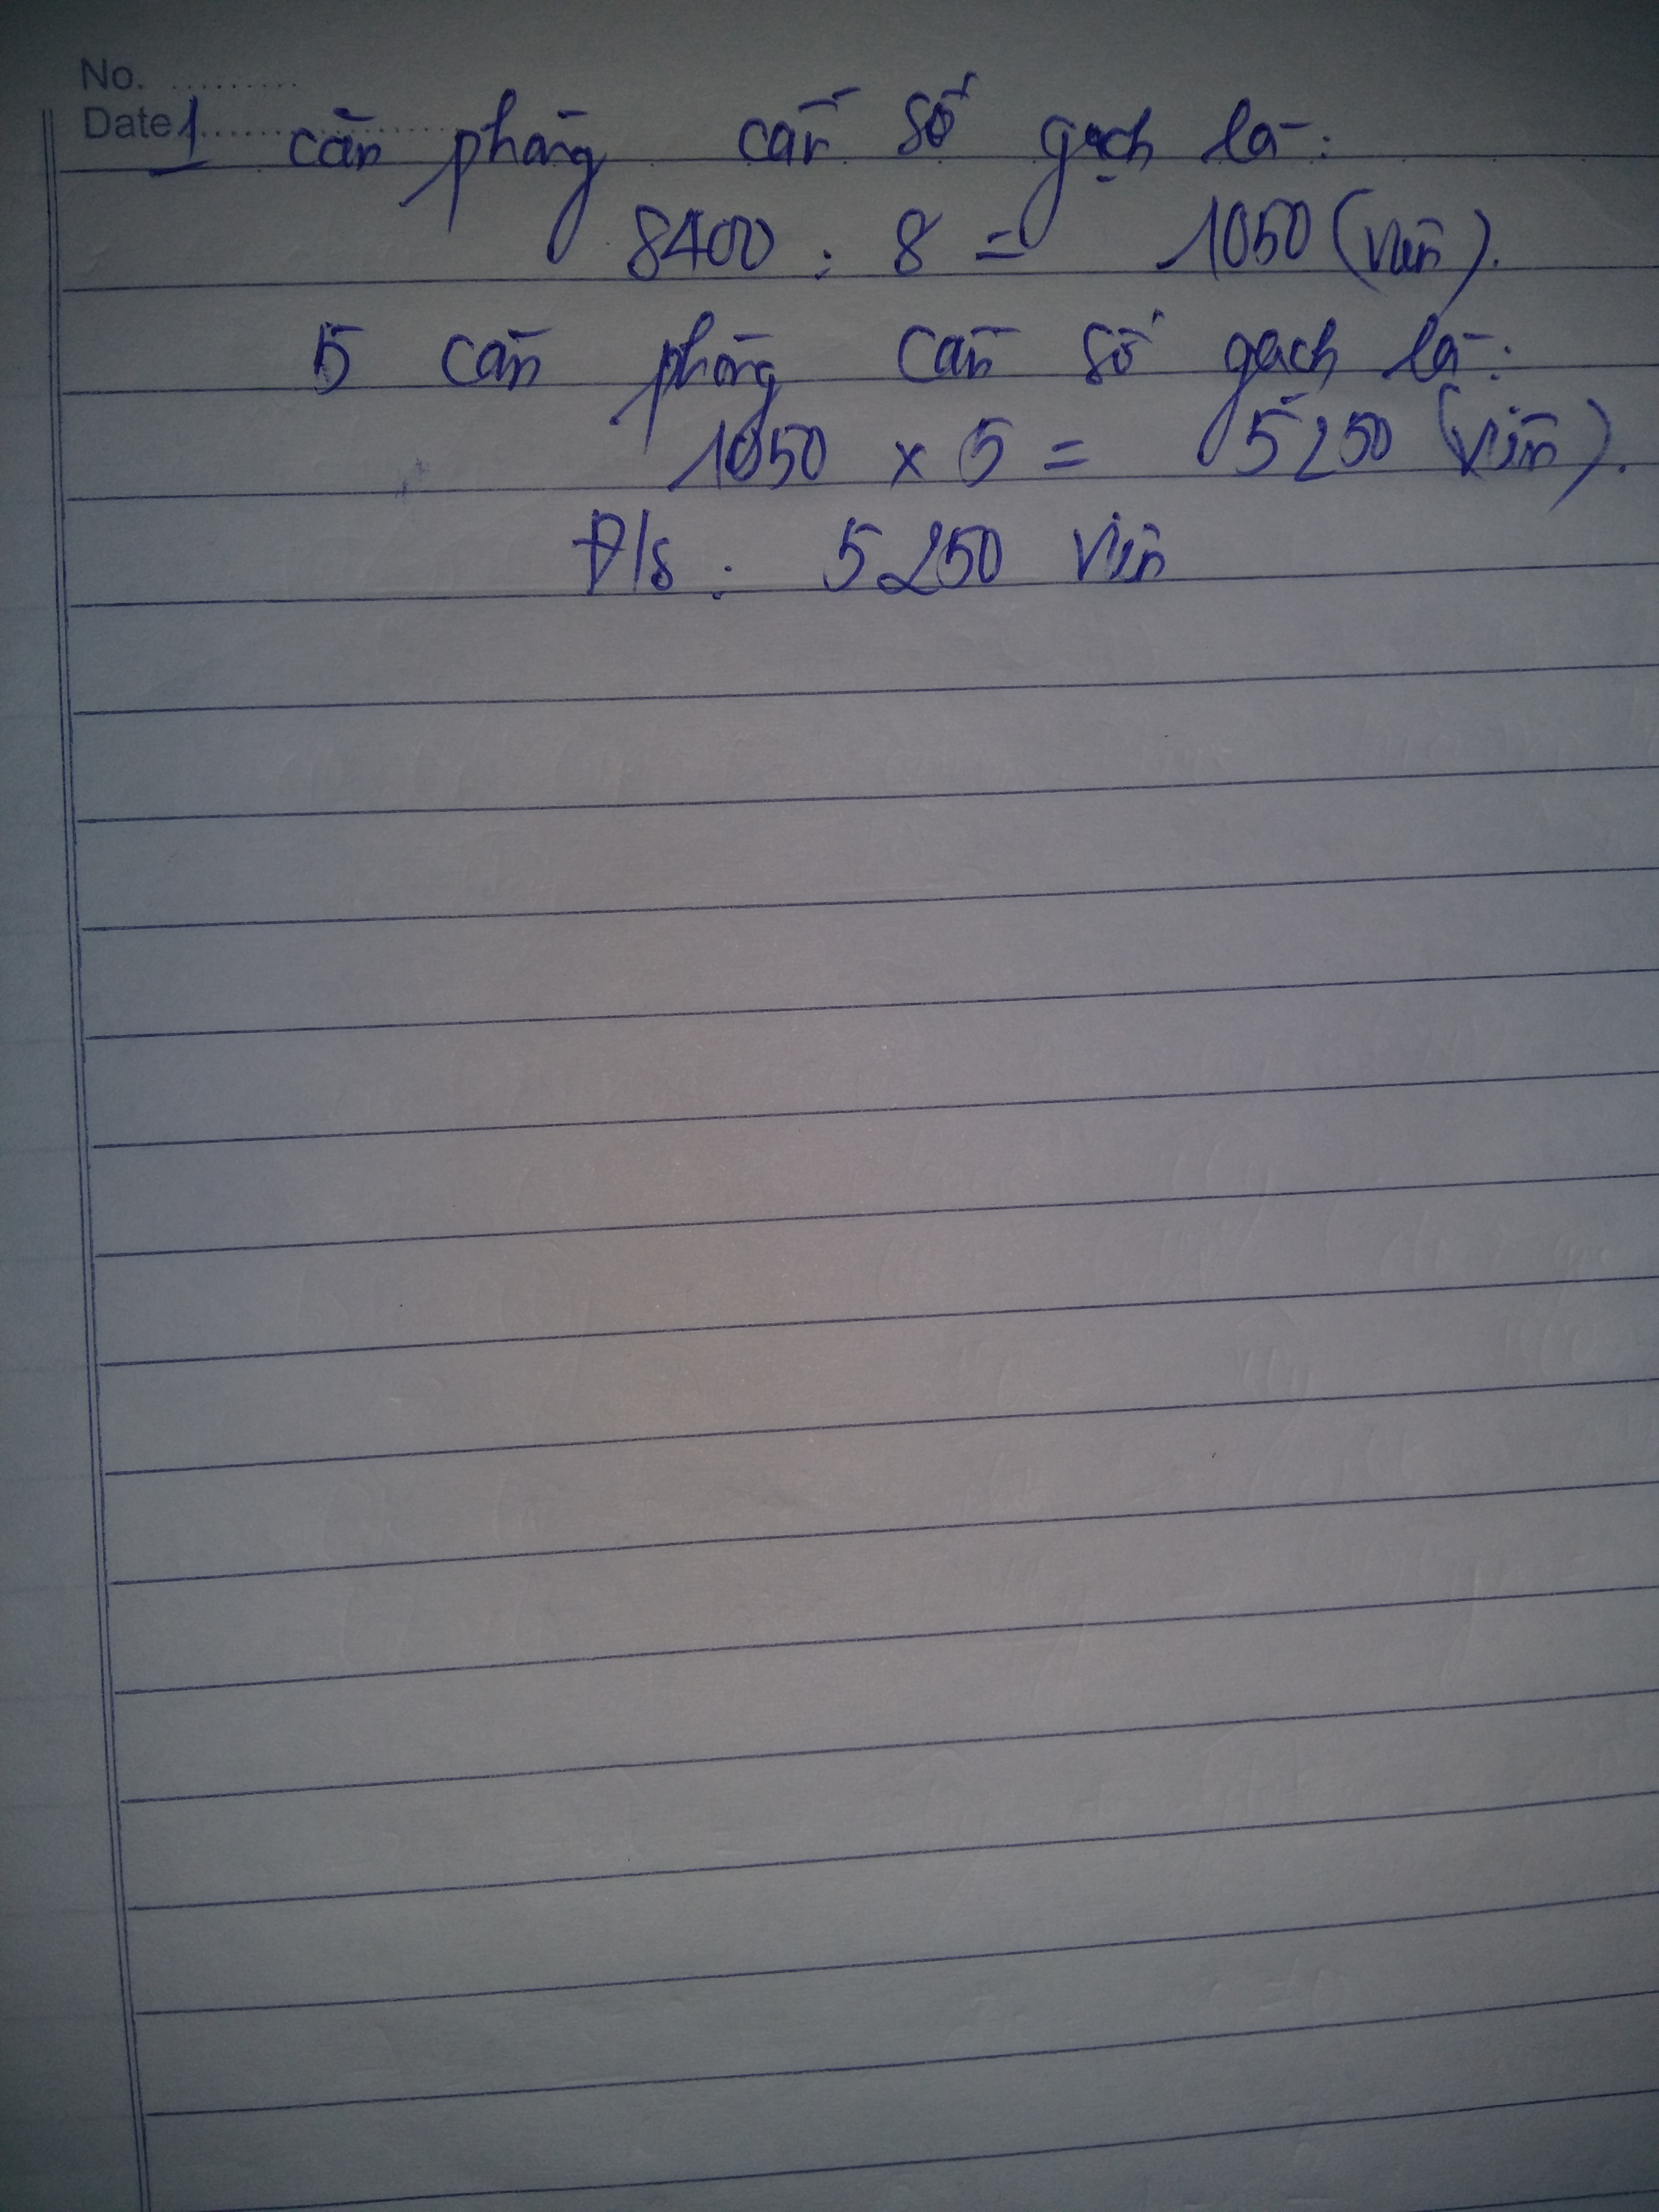 No. ..........
Date 1 căn phòng cần số gạch là:
8400 : 8 = 1050 (viên).
5 căn phòng cần số gạch là:
1050 x 5 = 5250 (viên).
Đ/s : 5250 viên